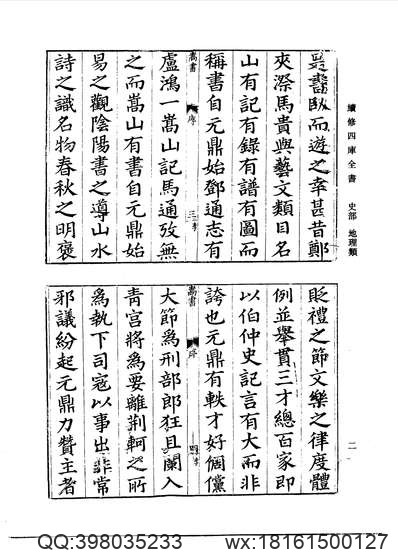 續修四庫全書 史部 地理類
書臥而遊之幸甚昔鄭
夾漈馬貴與藝文類目名
山有記有錄有譜有圖而
稱書自元鼎始鄧通志有
嵩書 序 三
盧鴻一嵩山記馬通攷無
之而嵩山有書自元鼎始
易之觀陰陽書之導山水
詩之識名物春秋之明褒
貶禮之節文樂之律度體
例並舉貫三才總百家即
以伯仲史記言有大而非
誇也元鼎有軼才好倜儻
嵩書 序 四
大節爲刑部郎狂且闌入
青宮將爲要離荊軻之所
爲執下司寇以事出非常
邪議紛起元鼎力贊主者
二
QQ:398035233 wx:18161500127